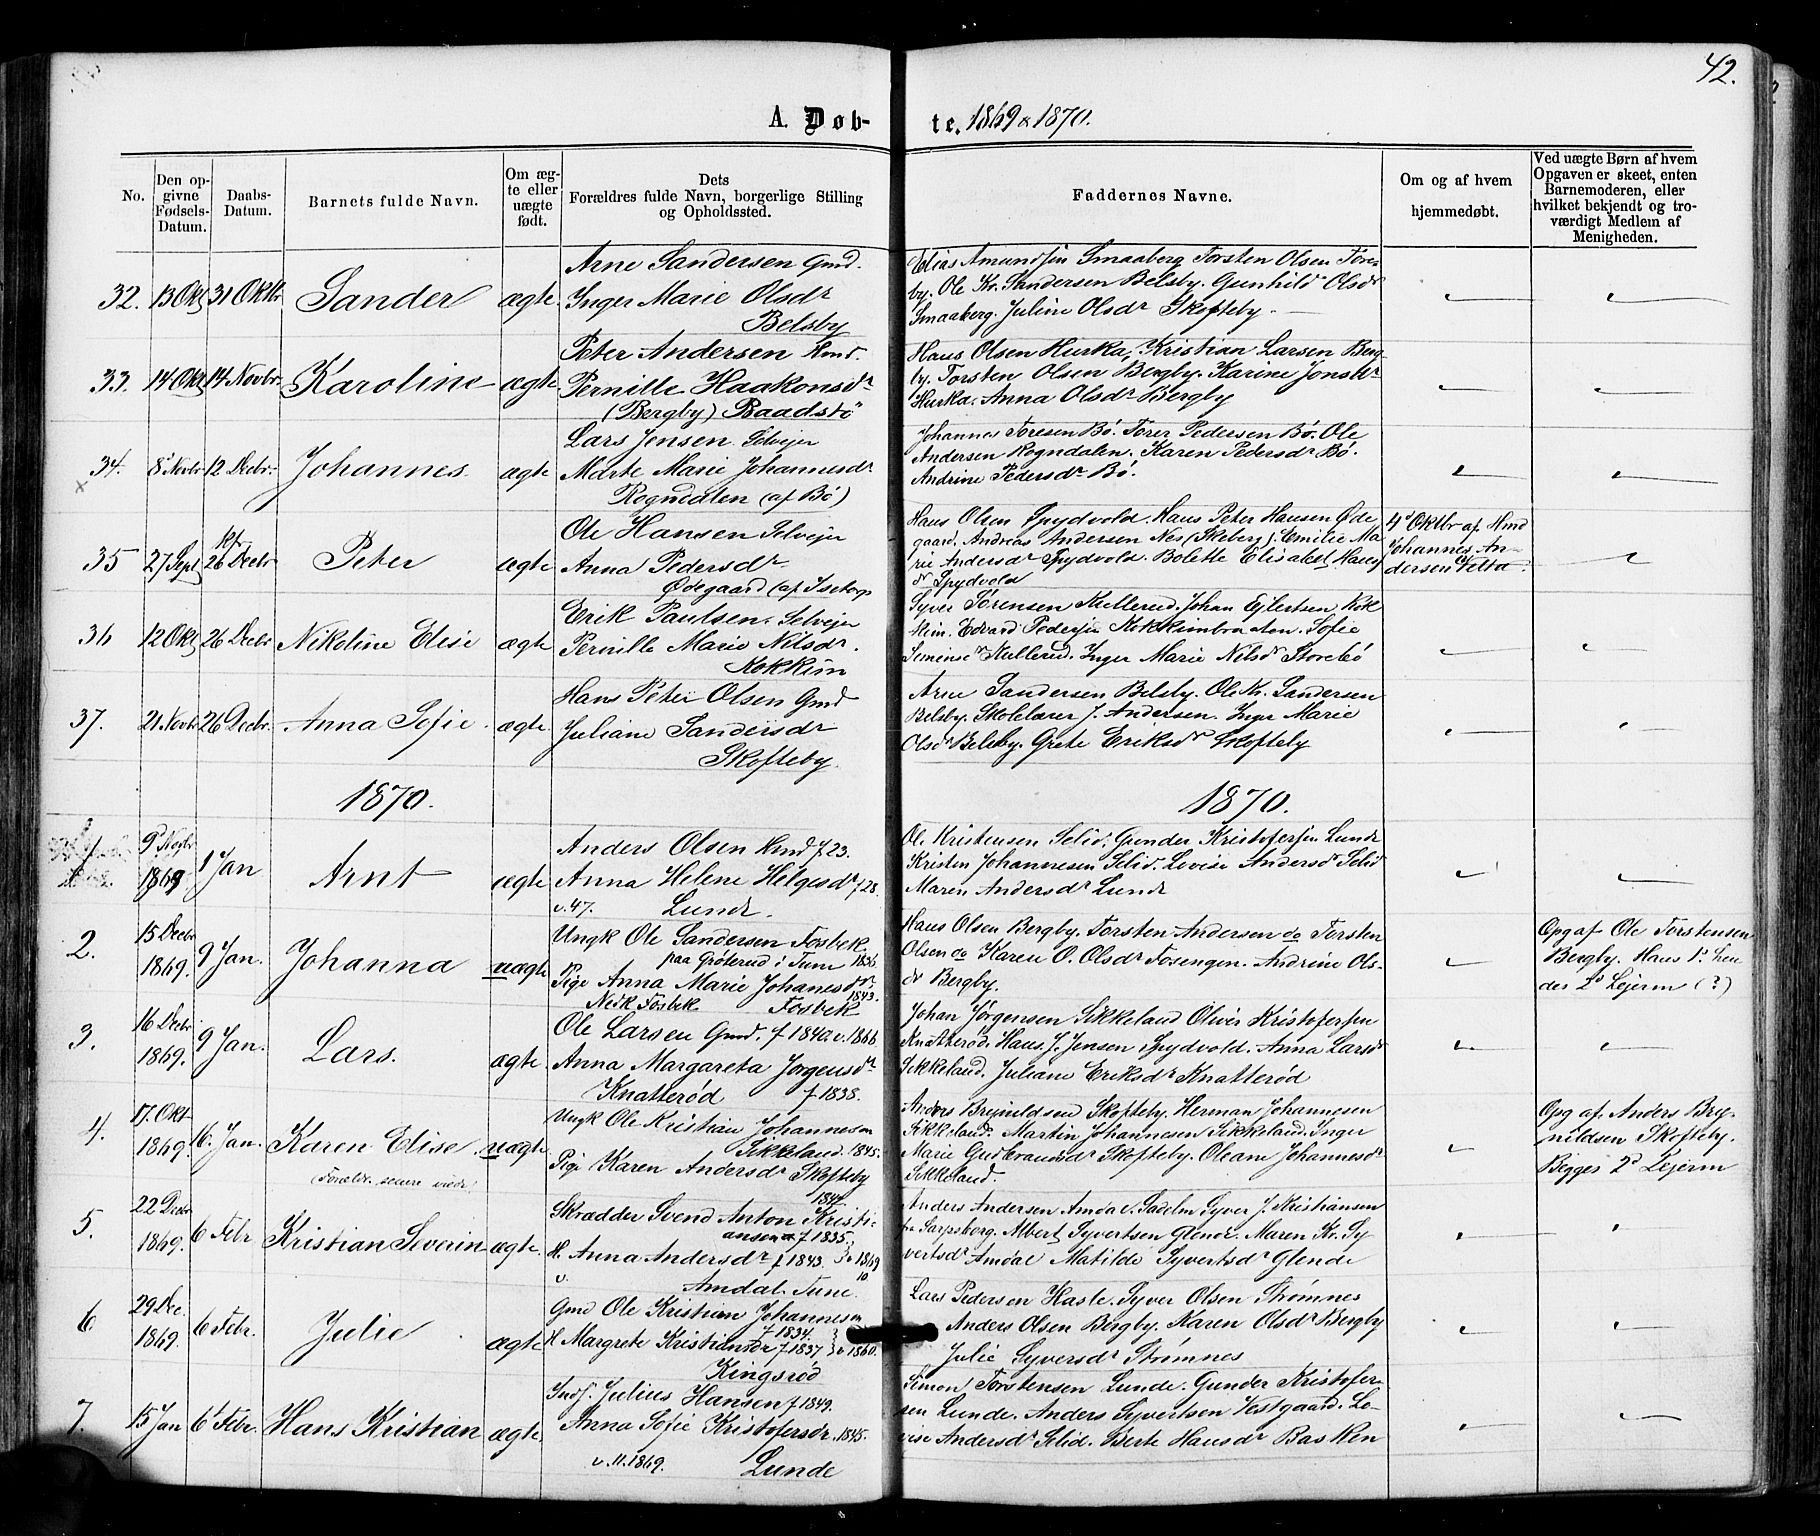 42.
A. Døb- te. 1869 & 1870.
No.
Den opgivne Fødsels-Datum.
Daabs-Datum.
Barnets fulde Navn.
Om ægte eller uægte født.
Dets Forældres fulde Navn, borgerlige Stilling og Opholdssted.
Faddernes Navne.
Om og af hvem hjemmedøbt.
Ved uægte Børn af hvem Opgaven er skeet, enten Barnemoderen, eller hvilket bekjendt og troværdigt Medlem af Menigheden.
32. 13 Okt 31 Oktbr Sander ægte
Arne Sandersen Gmd.
Inger Marie Olsdr
Belsby
Elias Amundsen Smaaberg. Torsten Olsen Tore-
by. Ole Kr. Sandersen Belsby. Gunhild Olsdr
Smaaberg. Juline Olsdr Skofteby.
33. 14 Okt 14 Novbr Karoline ægte
Peter Andersen Hmd.
Pernille Haakonsdr
(Bergby) Baadstö
Hans Olsen Hurka, Kristian Larsen Berg-
by. Torsten Olsen Bergby. Karine Jonsdr
Hurka. Anna Olsdr Bergby
34. 8 Novbr 12 Decbr Johannes ægte
Lars Jensen Selvejer
Marte Marie Johannesdr
Rogndalen (af Bö)
Johannes Toresen Bö. Torer Pedersen Bö. Ole
Andersen Rogndalen. Karen Pedersdr Bö.
Andrine Pedersdr Bö.
35 27 Sept 26 Decbr Peter ægte
Ole Hansen Selvejer
Anna Pedersdr
Ødegaard (af Isetorp
Hans Olsen Spydvold. Hans Peter Hansen Øde
gaard. Andreas Andersen Nes (Skeberg). Emilie Ma-
rie Andersdr Spydvold. Bolette Elisabet Hans
dr Spydvold
4 Oktbr af Hmd
Johannes An-
dersen Vetta.
36 12 Okt 26 Decbr Nikoline Elise ægte
Erik Paulsen. Selvejer
Pernille Marie Nilsdr.
Kokkim
Syver Törensen Kullerud. Johan Ejlertsen Kok
kim. Edvard Pedersen Kokkimbraaten. Sofie
Kullerud. Inger Marie Nilsdr Storebö
37. 21 Novbr 26 Decbr. Anna Sofie. ægte
Hans Peter Olsen Gmd
Juliane Sandersdr
Skofteby.
Arne Sandersen Belsby. Ole Kr. Sandersen
Belsby. Skolelærer J. Andersen. Inger Marie
Olsdr Belsby. Grete Eriksdr Skofteby
1870.
1870.
1 9 Novbr 1869 1 Jan Arnt ægte
Anders Olsen Hmd f 23.
Anna Helene Helgesdr f 28.
v. 47. Lunde.
Ole Kristensen Selid. Gunder Kristofersen Lunde
Kristen Johannesen Selid. Lovise Andersdr Selid
Maren Andersdr Lunde
2. 15 Decbr 1869. 9 Jan. Johanna uægte
Ungk Ole Sandersen Fosbek
paa Gröterud i Tune 1836.
Pige Anna Marie Johanesdr
1843.
Nedr. Fosbek Fosbek
Hans Olsen Bergby. Torsten Andersen do Torsten
Olsen do Karen O. Olsdr Tosengen. Andrine Ols-
dr Bergby.
Opg af Ole Torstensen
Bergby. Hans 1ste, hen
des 2d Lejerm (?)
3. 16 Decbr 1869. 9 Jan. Lars. ægte
Ole Larsen Gmd. f 1840. v. 1866
Anna Margareta Jørgensdr
Knatteröd f 1838.
Johan Jørgensen Sikkeland Oliver Kristofersen
Knatteröd. Hans J. Jensen Spydvold. Anna Larsdr
Sikkeland. Juliane Eriksdr Knatteröd
4. 17. Okt 1869. 16. Jan. Karen Elise. uægte
(Forældr. senere viede)
Ungk Ole Kristian Johannesen
Sikkeland. 1845.
Pige Karen Andersdr Skofteby
1847.
Anders Brynildsen Skofteby. Herman Johannesen
Sikkeland. Martin Johannesen Sikkeland. Inger
Marie Gudbrandsdr Skofteby. Oleane Johannesdr
Sikkeland.
Opg af. Anders Bry-
nildsen Skofteby.
Begges 2d Lejerm
5. 22 Decbr 1869. 6 Febr. Kristian Severin ægte
Skrædder Svend Anton Kristi-
ansen f 1835.
H. Anna Andersdr f 1843. v 1869
Amdal. Tune.
Anders Andersen Amdal. Sadelm Syver J. Kristiansen
fr Sarpsborg. Albert Syvertsen Glende. Maren Kr. Sy
vertsdr Amdal Matilde Syvertsdr Glende
6 29 Dec. 1869. 6 Febr. Julie ægte
Gmd Ole Kristian Johannesen
f 1834.
H Margrete Kristiansdr f 1837 v 1860.
Kingsröd
Lars Pedersen Hasle. Syver Olsen Strömnes
Anders Olsen Bergby. Karen Olsdr Bergby
Julie Syversdr Strömnes
7. 15 Jan 6 Febr. Hans Kristian ægte.
Inds. Julius Hansen f 1849.
Anna Sofie Kristofersdr. 1845.
v. 11. 1869. Lunde
Simon Torstensen Lunde. Gunder Kristofer-
sen Lunde. Anders Syvertsen Vestgaard. Lo-
vise Andersdr Selid. Berte Hansdr Basken